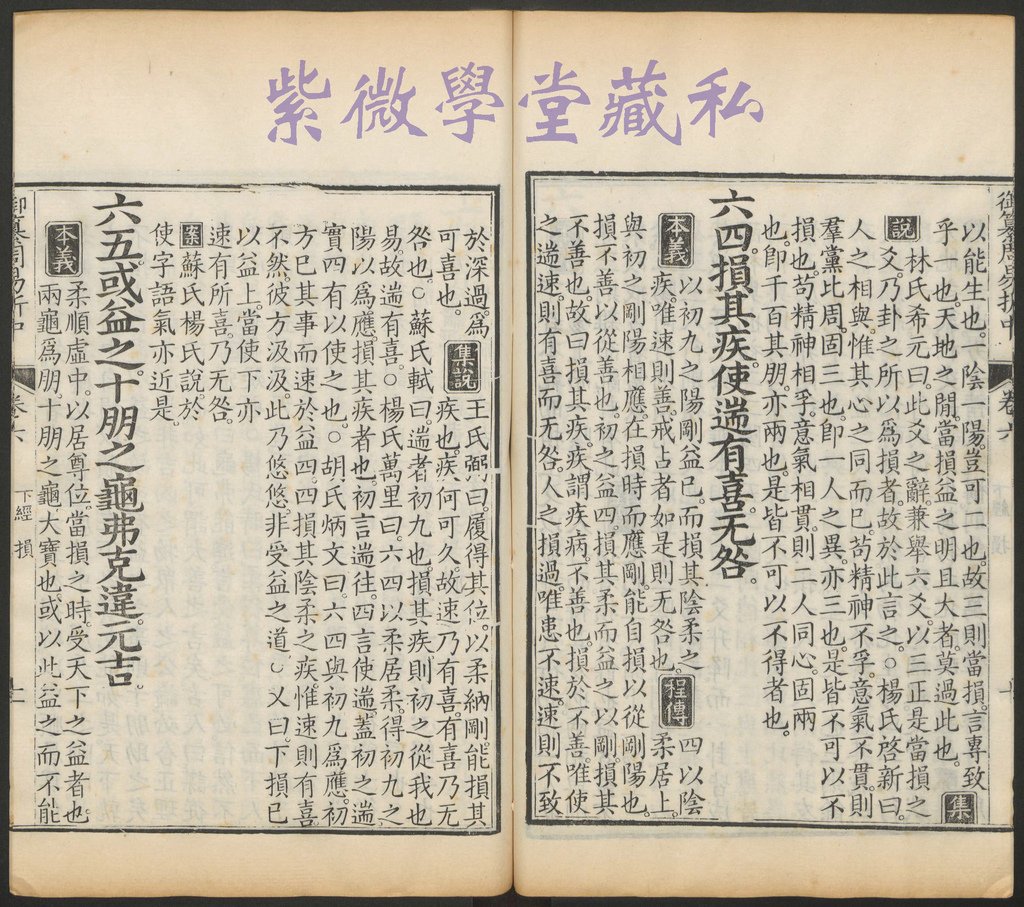 紫微學堂藏私
御纂周易折中 卷六
以能生也。一陰一陽。豈可二也。故三則當損。言專致
乎一也。天地之閒。當損益之明且大者。莫過此也。
集說
林氏希元曰。此爻之辭。兼舉六爻。以三正是當損之
爻。乃卦之所以爲損者。故於此言之。○楊氏啓新曰。
人之相與。惟其心之同而已。苟精神不孚。意氣不貫。則
羣黨比周。固三也。卽一人之異。亦三也。是皆不可以不
損也。苟精神相孚。意氣相貫。則二人同心。固兩
也。卽千百其朋。亦兩也。是皆不可以不得者也。
六四損其疾使遄有喜无咎。
本義
以初九之陽剛益己。而損其陰柔之
疾。唯速則善。戒占者如是。則无咎也。
程傳
四以陰
柔居上。
與初之剛陽相應。在損時而應剛。能自損以從剛陽也。
損不善以從善也。初之益四。損其柔而益之以剛。損其
不善也。故曰損其疾。疾謂疾病。不善也。損於不善。唯使
之遄速。則有喜而无咎。人之損過。唯患不速。速則不致
於深過。爲
可喜也。
集說
王氏弼曰。履得其位。以柔納剛。能損其
疾也。疾何可久。故速乃有喜。有喜乃无
咎也。○蘇氏軾曰。遄者初九也。損其疾。則初之從我也
易。故遄有喜。○楊氏萬里曰。六四以柔居柔。得初九之
陽以爲應。損其疾者也。初言遄往。四言使遄。蓋初之遄
實四有以使之也。○胡氏炳文曰。六四與初九爲應。初
方已其事而速於益四。四損其陰柔之疾。惟速則有喜
不然。彼方汲汲。此乃悠悠。非受益之道。○又曰。下損已
以益上。當使下亦
速有所喜。乃无咎。
案
蘇氏楊氏說。於
使字語氣亦近是。
六五或益之十朋之龜弗克違元吉
本義
柔順虛中。以居尊位。當損之時。受天下之益者也。
兩龜爲朋。十朋之龜。大寶也。或以此益之而不能
御纂周易折中 卷六 下經 損